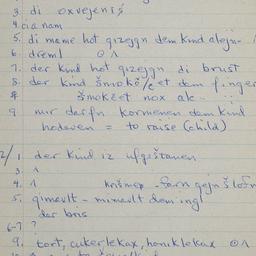 3. di oxvejeniš
4. cia nam
5. di mame hot gizejgn dem kind alejn-
6. dreml o ʌ
7. der kind hot gizejgn di brust
8. der kind šmokčet dem finger
šmokčet nox alc.
9 mir darfn kormenen dem kind
hodeven = to raise (child)
2/1 der kind iz ufgištanen
3. ʌ
4. ʌ krišmep - farn gejn šlofn
5. gimault - mimault dem ingl
der bris
6-7 ?
9. tort, cukerlekax, honiklekax o ʌ